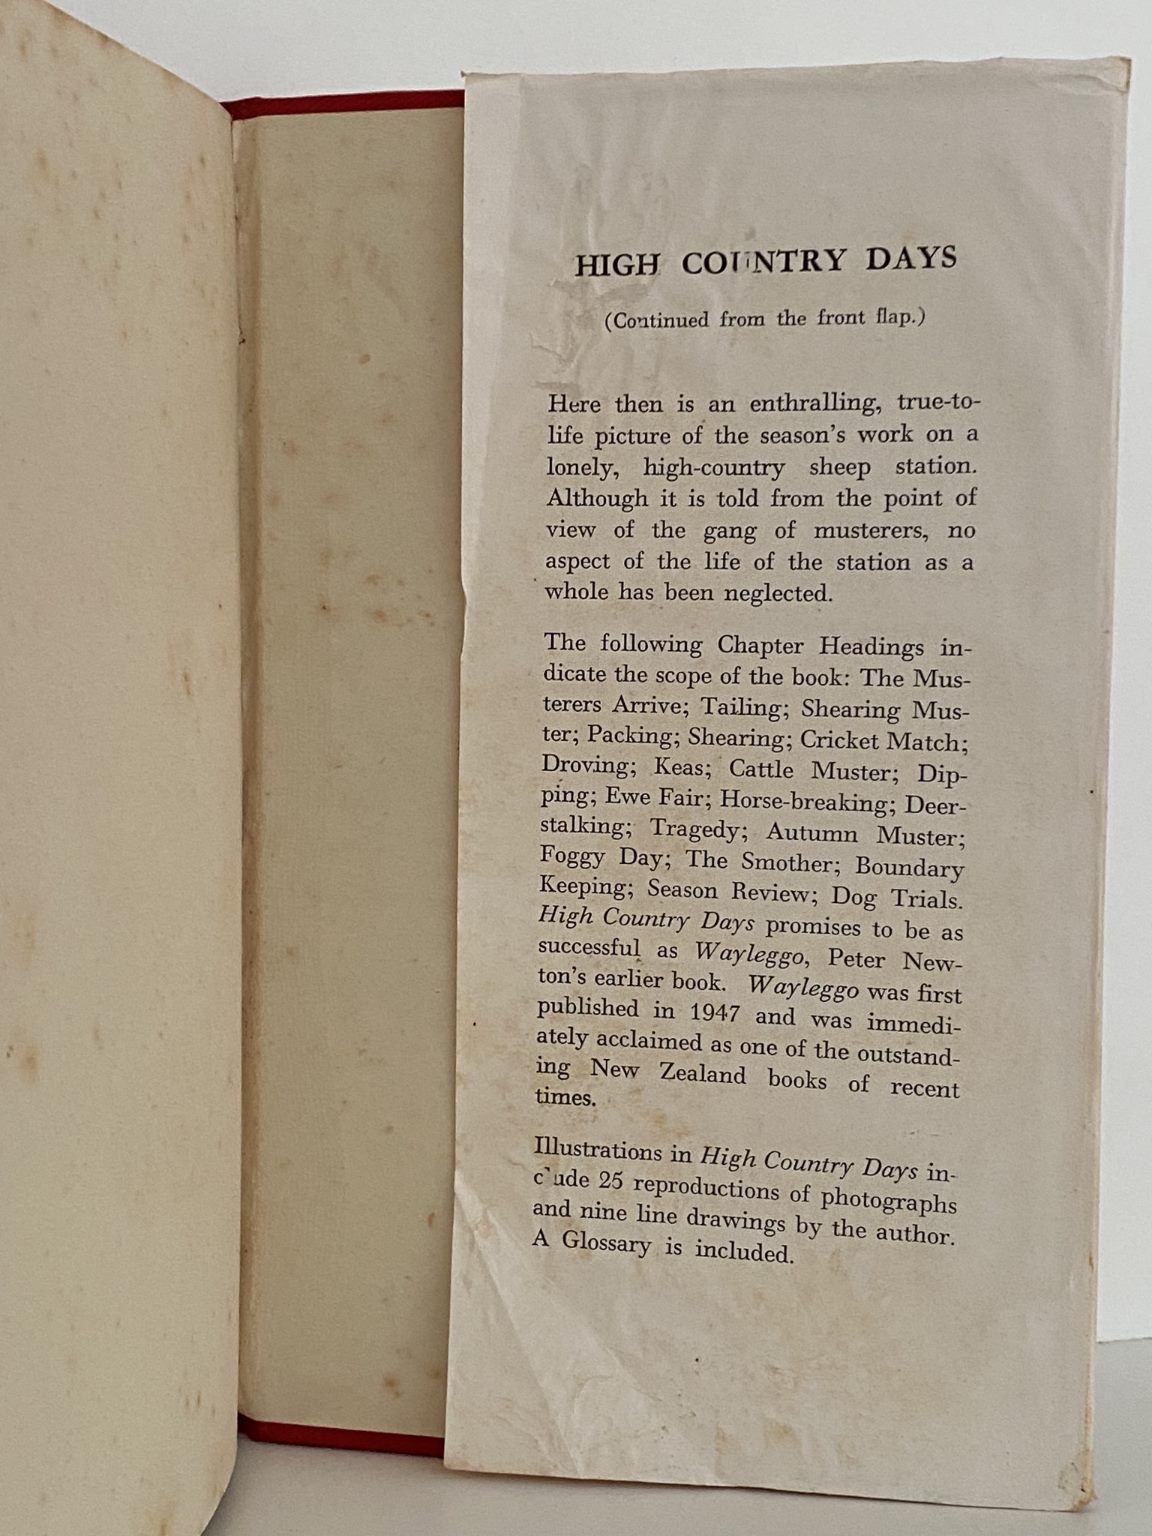 HIGH COUNTRY DAYS
(Continued from the front flap.)
Here then is an enthralling, true-to-
life picture of the season's work on a
lonely, high-country sheep station.
Although it is told from the point of
view of the gang of musterers, no
aspect of the life of the station as a
whole has been neglected.
The following Chapter Headings in-
dicate the scope of the book: The Mus-
terers Arrive; Tailing; Shearing Mus-
ter; Packing; Shearing; Cricket Match;
Droving; Keas; Cattle Muster; Dip-
ping; Ewe Fair; Horse-breaking; Deer-
stalking; Tragedy; Autumn Muster;
Foggy Day; The Smother; Boundary
Keeping; Season Review; Dog Trials.
High Country Days promises to be as
successful as Wayleggo, Peter New-
ton's earlier book. Wayleggo was first
published in 1947 and was immedi-
ately acclaimed as one of the outstand-
ing New Zealand books of recent
times.
Illustrations in High Country Days in-
clude 25 reproductions of photographs
and nine line drawings by the author.
A Glossary is included.